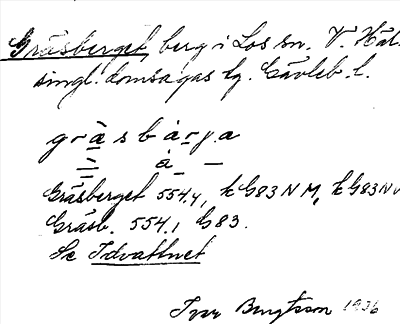 Gräsberget, berg i Los sn. V. Häl-
singl. domsagas lg. Gävleb. l.
gräsbárja
Gräsberget 554.4, k G83 N M, k G83 N v
Gräsb. 554.1 G83.
Se Idvattnet
Ivar Bengtsson 1936